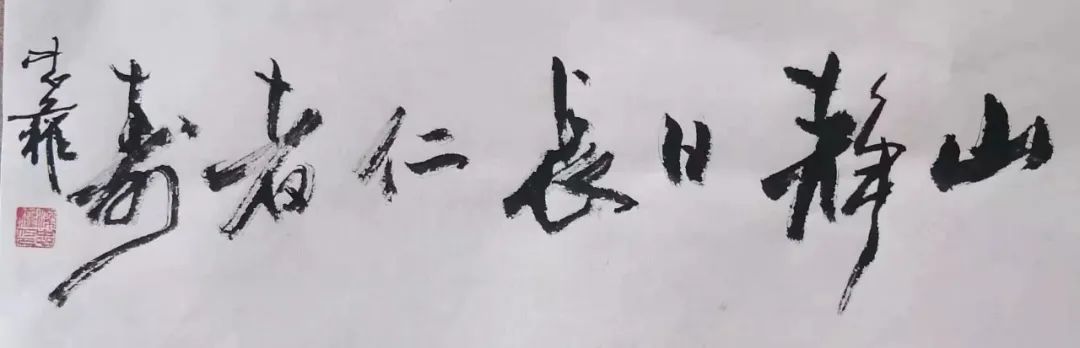 山静日长仁者寿